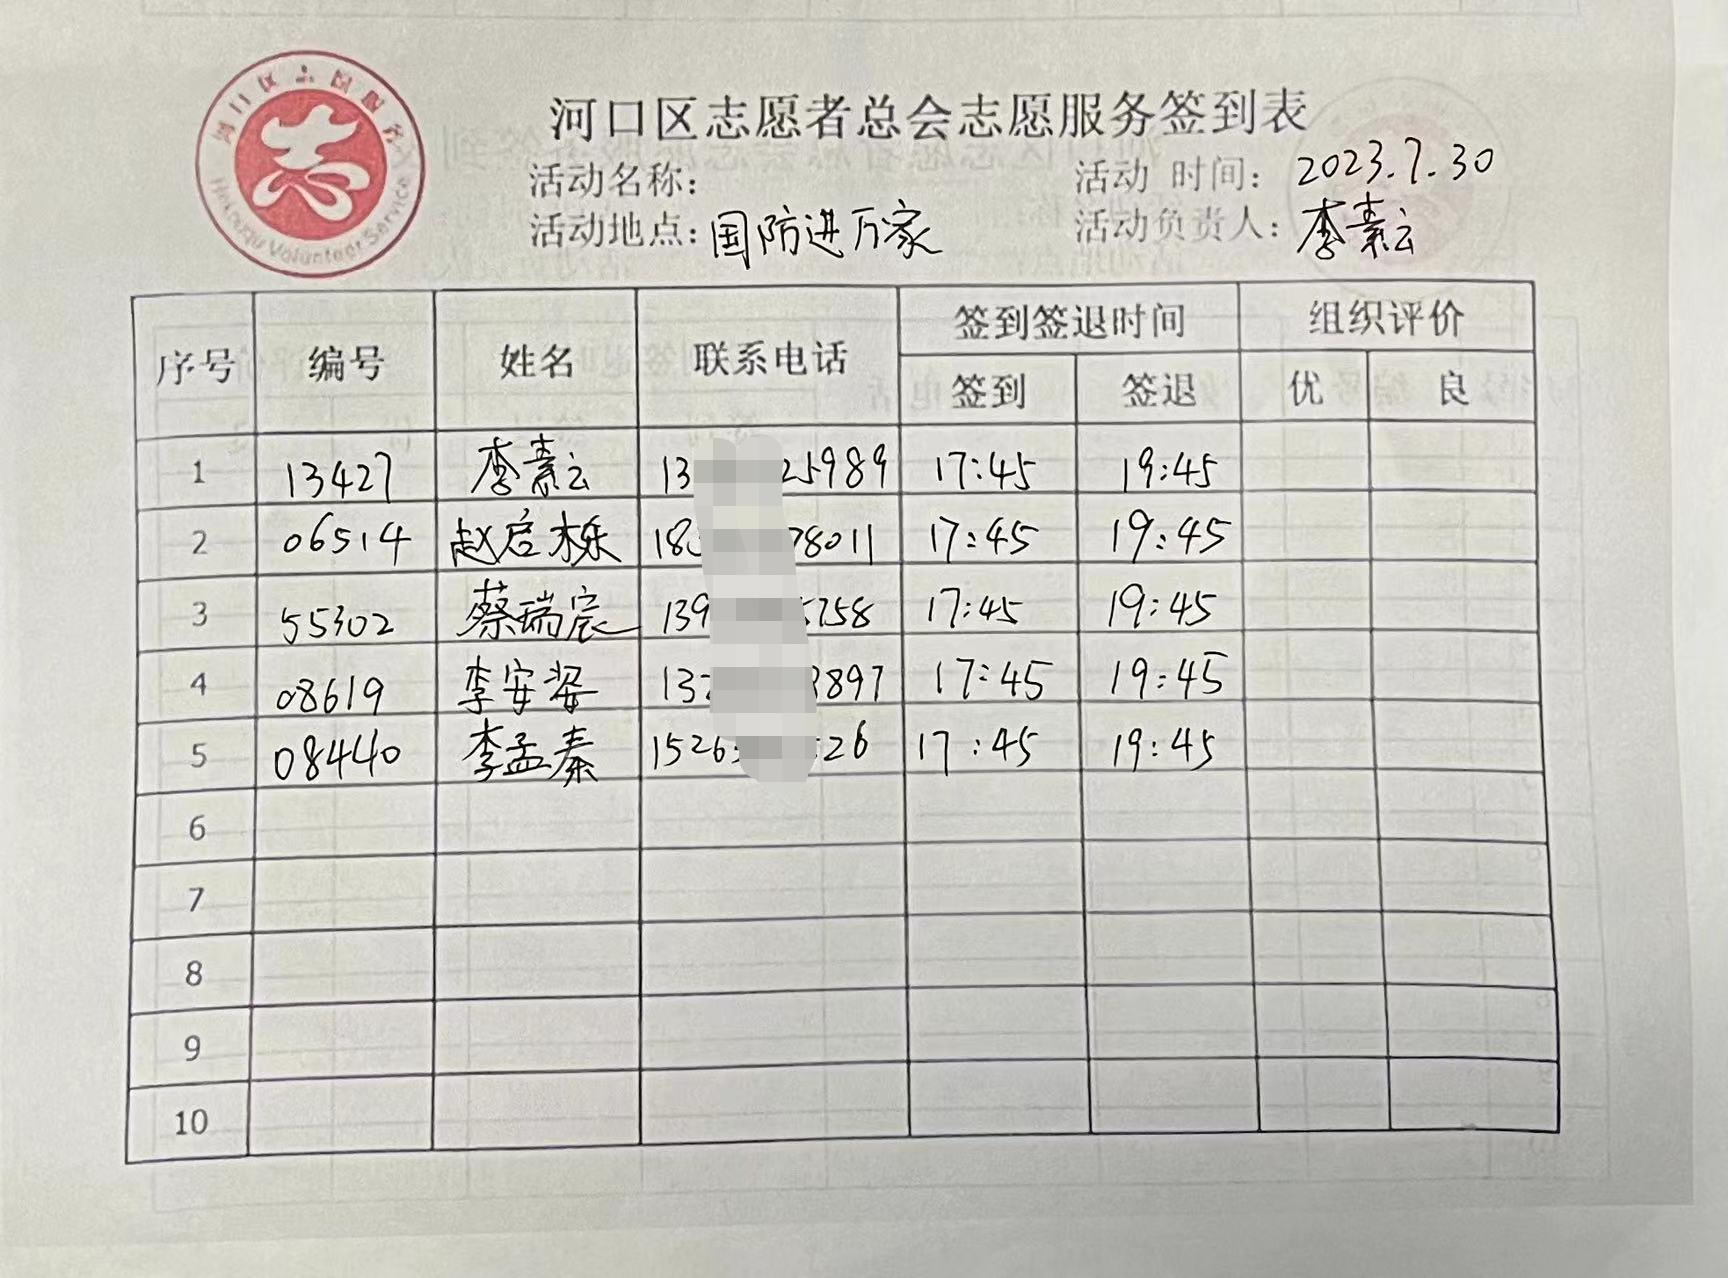 河口区志愿服务
Hekouqu Volunteer Service
河口区志愿者总会志愿服务签到表
活动名称： 活动 时间： 2023.7.30
活动地点： 国防进万家 活动负责人： 李素云
序号 编号 姓名 联系电话 签到签退时间 组织评价
签到 签退 优 良
1 13427 李素云 13 25989 17:45 19:45
2 06514 赵启栎 18 78011 17:45 19:45
3 55302 蔡瑞宸 139 5758 17:45 19:45
4 08619 李安姿 13 897 17:45 19:45
5 08440 李孟秦 1526 26 17:45 19:45
6
7
8
9
10